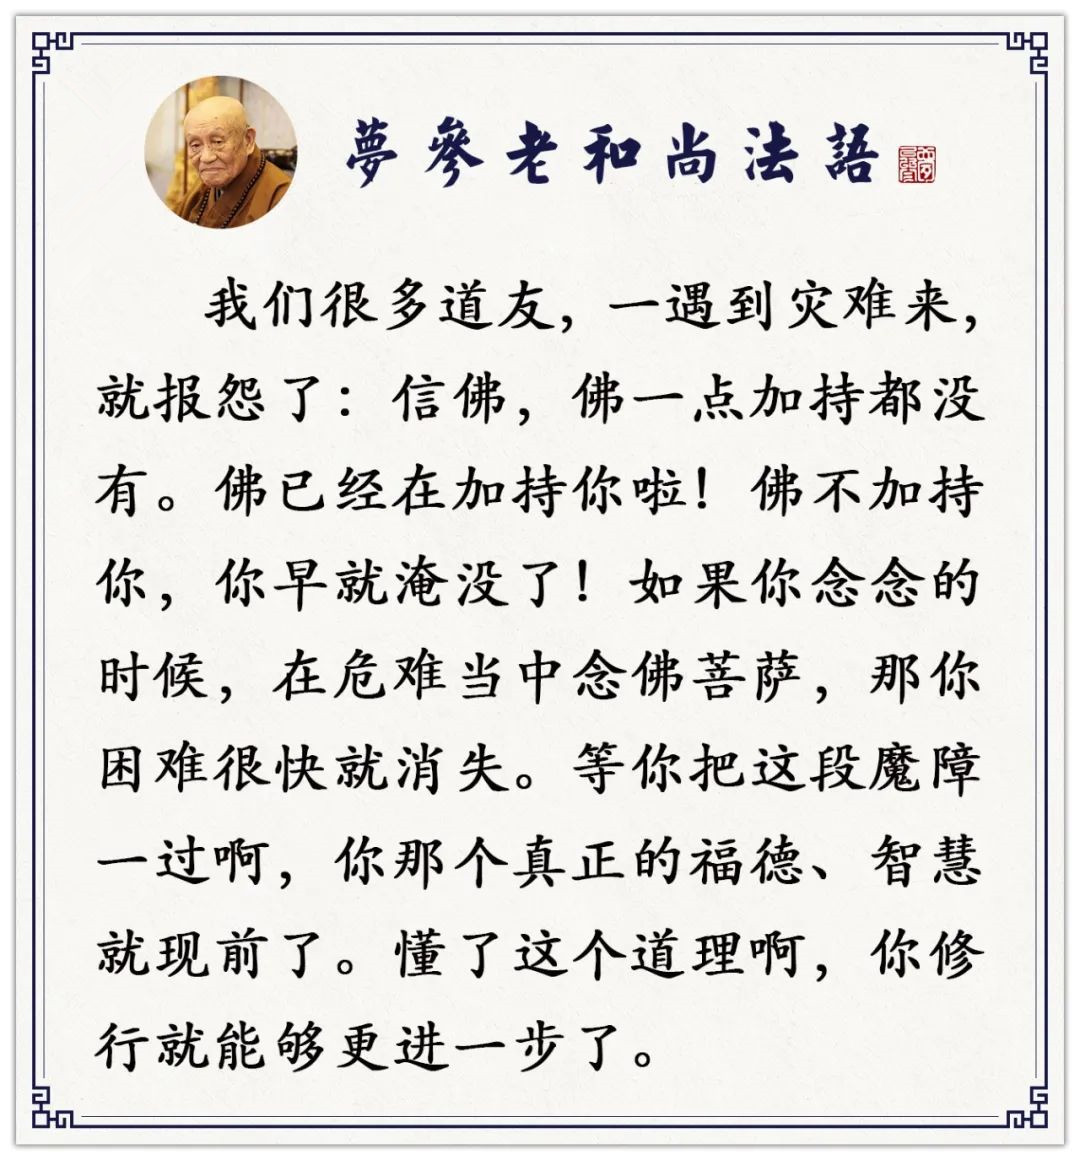 夢參老和尚法語
我们很多道友，一遇到灾难来，
就报怨了：信佛，佛一点加持都没
有。佛已经在加持你啦！佛不加持
你，你早就淹没了！如果你念念的
时候，在危难当中念佛菩萨，那你
困难很快就消失。等你把这段魔障
一过啊，你那个真正的福德、智慧
就现前了。懂了这个道理啊，你修
行就能够更进一步了。